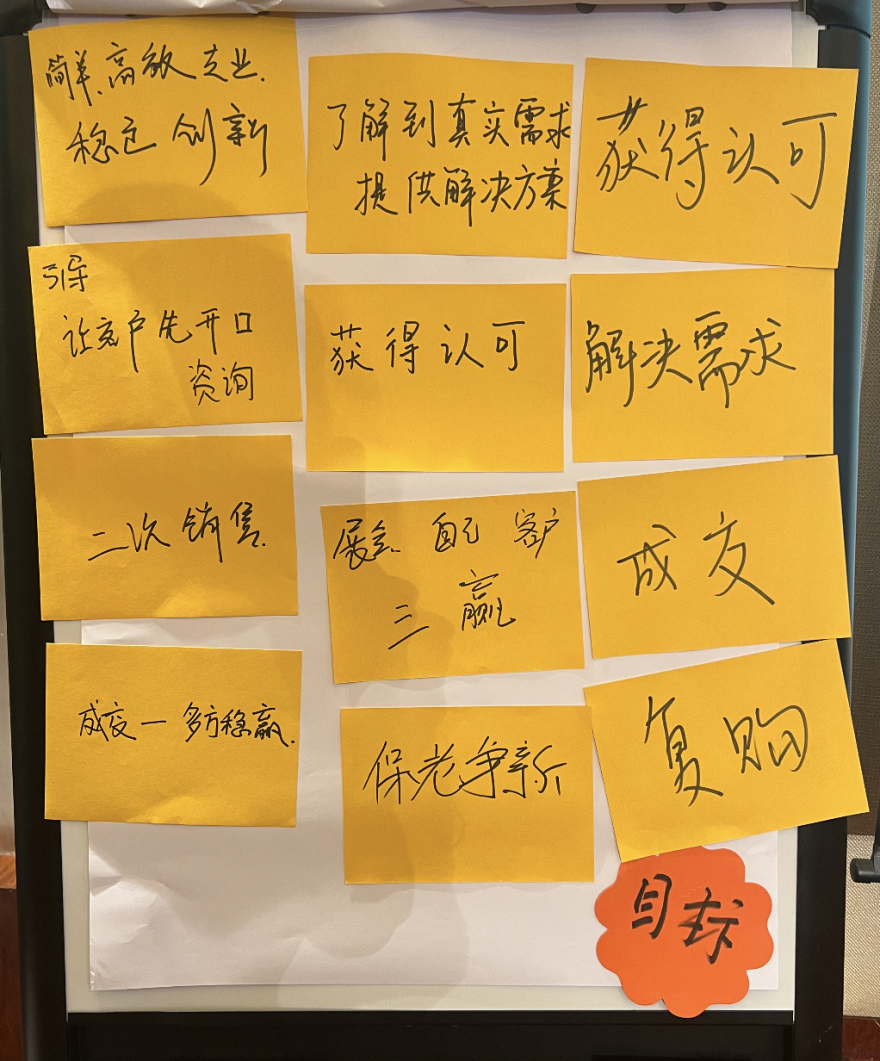 简单、高效专业、
稳定 创新
了解到真实需求
提供解决方案
获得认可
引导
让客户先开口
咨询
获得认可
解决需求
二次销售.
展会、自己 客户
三赢
成交
成交一多方稳赢.
保老争新
复购
目标